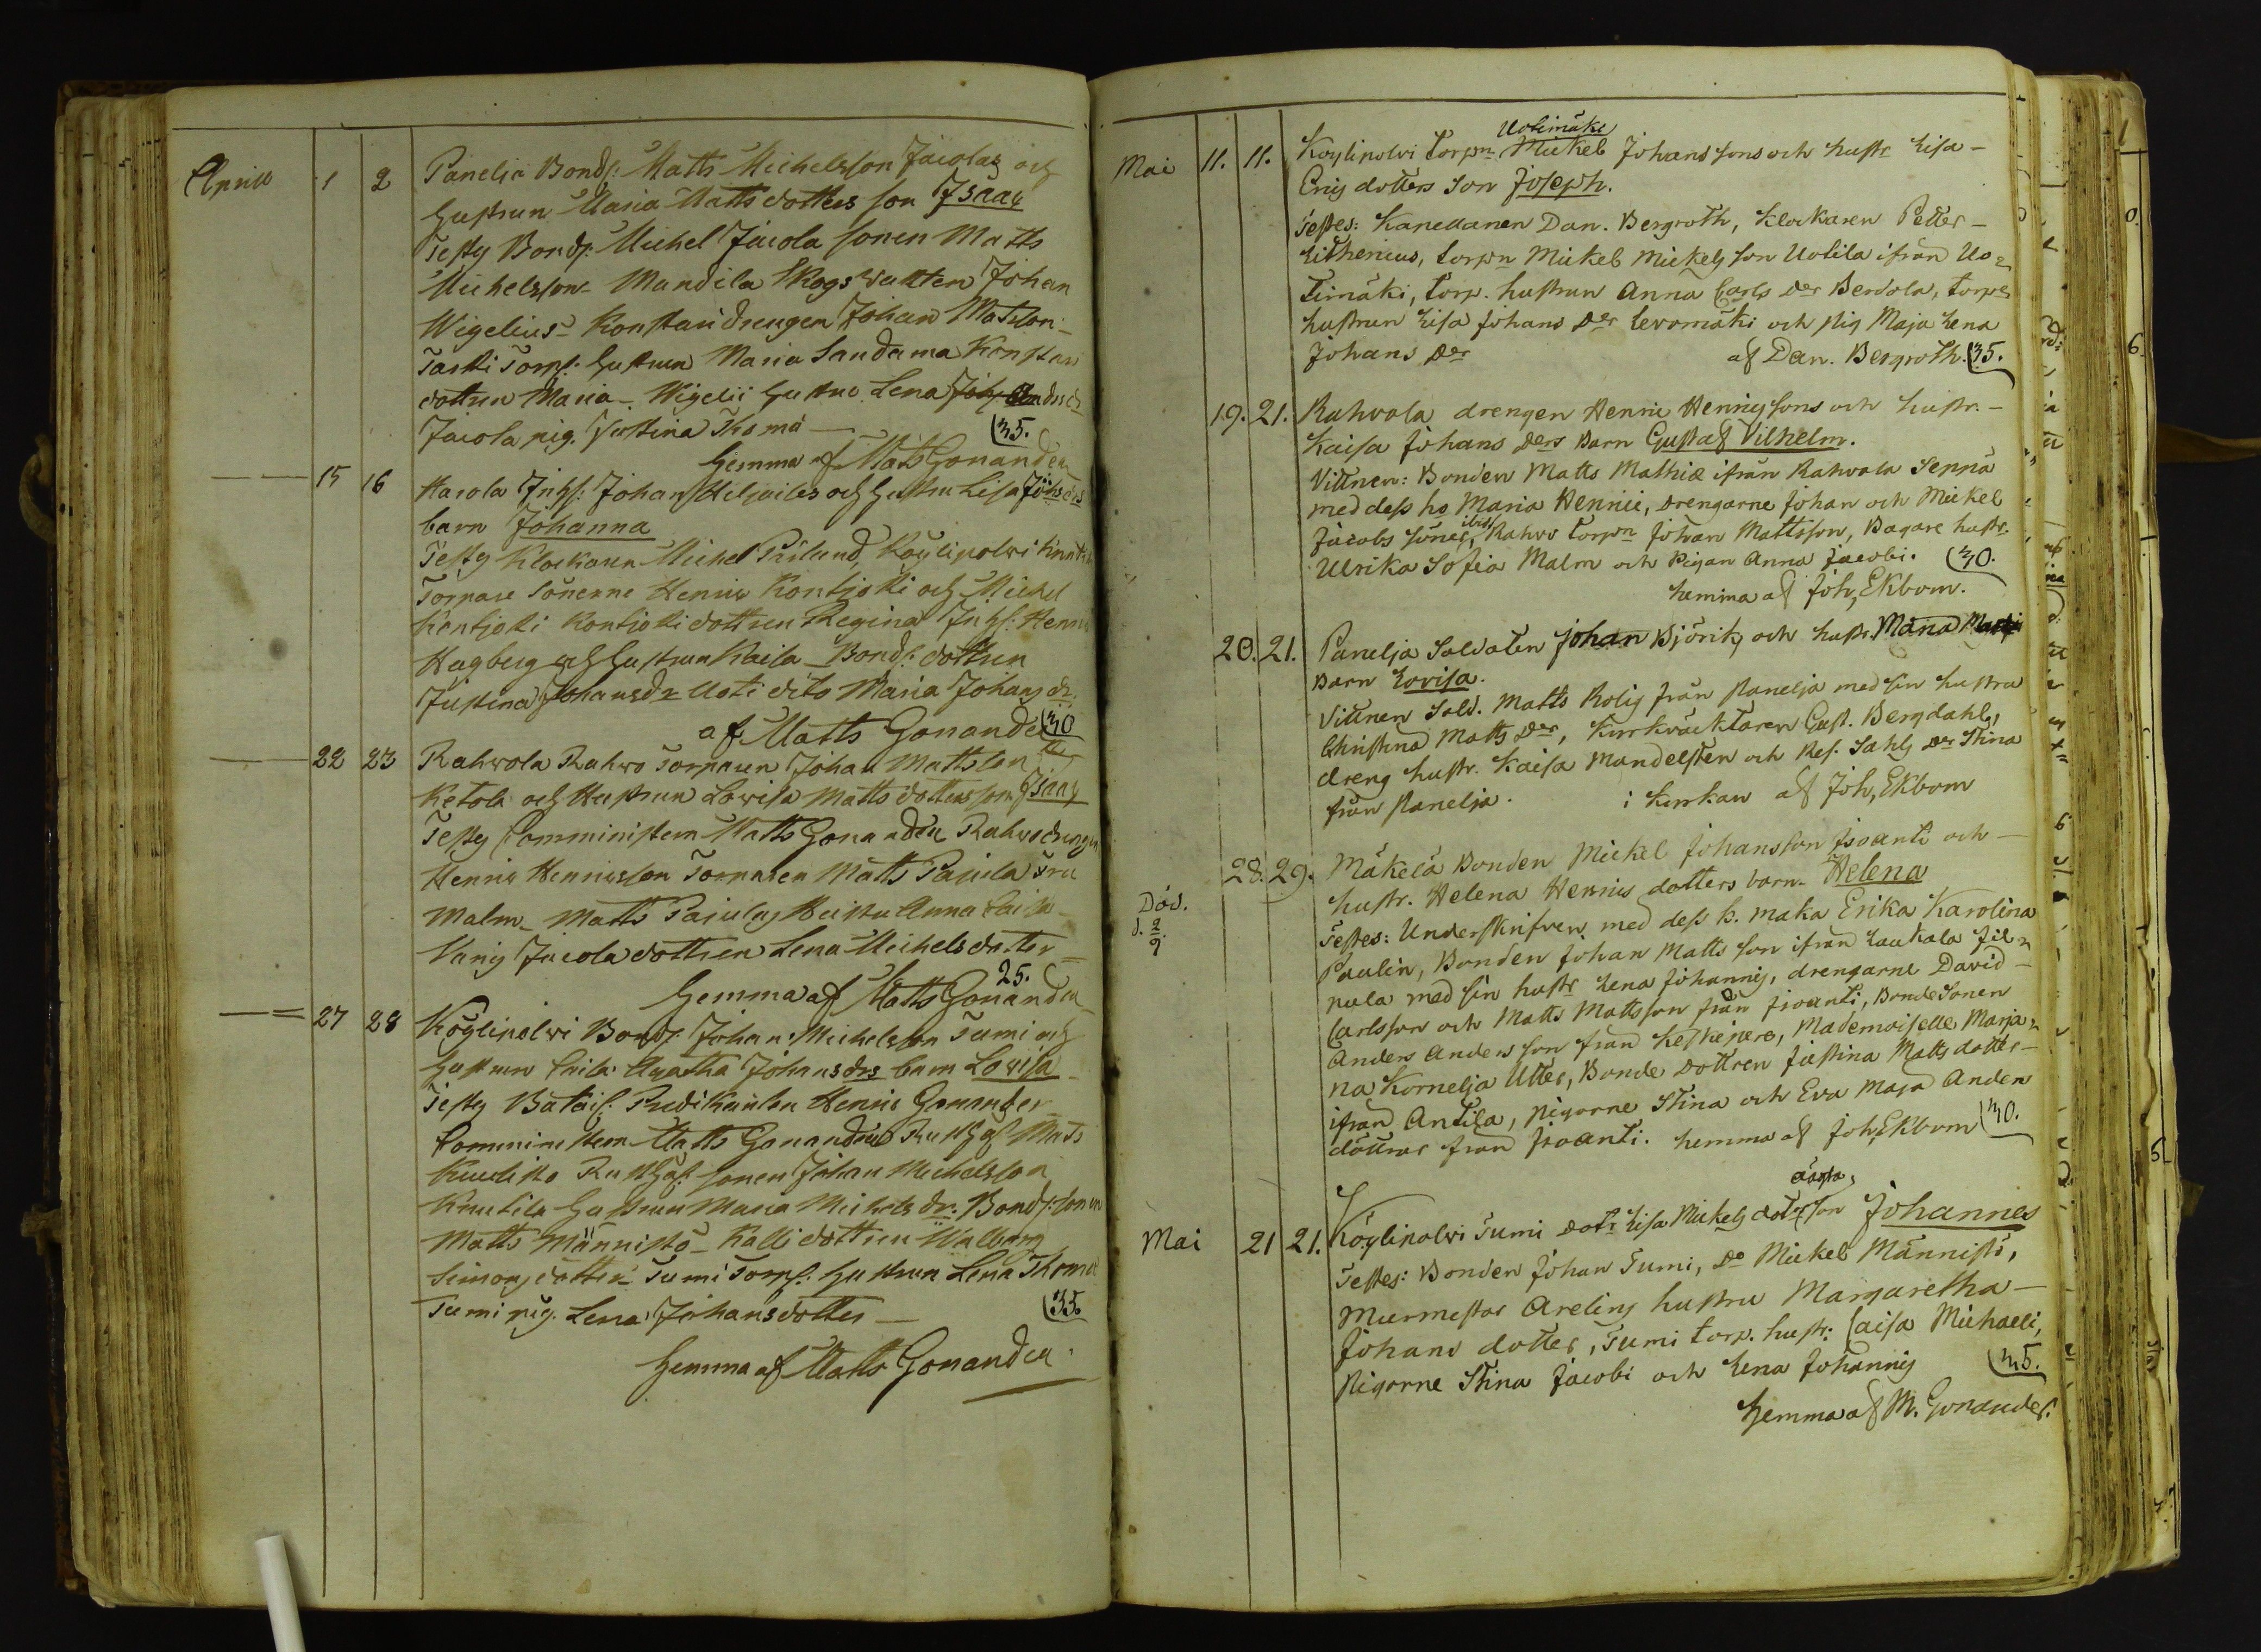 April 1 2 Panelia Bonds: Matts Michelsson Jaiolas och
hustrun Maria Matts dotters son Isaac
Testes Bonds: Michel Jaiola sonen Matts
Michelsson Mandila Skogs vakten Johan
Wigelius Konstari drengen Johan Matsson
Taski Torps: hustrun Maria Sandama Konstari
dottren Maria Wigelii hustru Lena
Jaiola pig. Justina Thoma (35.
hemma af Mats Gonander
15 16 Harola Inhs: Johan och hustru Lisa Johs drs
barn Johanna
Testes Klockaren Michel Köylipolvi
Torpare Sönerne Henric Kontjotti och Michel
Kontjotti Kontjotti dottren Regina Inhs: Henric
Hagberg och hustrun Kaisa Bonds: dottren
Justina Johansdr Uoti dito Maria Johans dr.
af Matts Gonander (30
22 23 Rahvola Rahvo Torparen Johan Mattsson
Ketola och Hustrun Lovisa Matts dotters son Isaac
Testes Comministern Matts Gonander Rahvo drengen
Henric Henricsson Torparen Matts Pajula Fru
Malm Matts Pajulas Hustru Anna Caisa
Jaiola dottren Lena Michelsdotter
25.
hemma af Matts Gonander
27 28 Köylipolvi Bonds: Johan Michelsson Tumi och
hustrun Caisa Agatha Johansdrs barn Lovisa
Testes Batails: Predikanten Henric Gonander
Comministern Matts Gonander Rusth: Mats
Kuulisto Rusth: sonen Johan Michelsson
Knutila hustrun Maria Michels dr. Bonds: sonen
Matts Männistö Kalli dottren Walborg
Simons dotter Tumi Torps: hustrun Lena Thoma
Tumi pig. Lena Johansdotter (35
hemma af Matts Gonander
Uotimäki
Mai 11. 11. Köylipolvi Torpn Mickel Johanssons och hustr Lisa
Erics dotters Son Joseph.
Testes: Kapellanen Dan. Bergroth, Klockaren Petter
Lithenius, torpn Mickel Mickels son Uotila ifrån Uo=
timäki, torp. hustrun Anna Carls Der Berdola, torps
hustrun Lisa Johans Der Levomäki och pig Maja Lena
Johans Der af Dan. Bergroth. (35.
19. 21. Rahvola drengen Henric Henricssons och hustr.
Kaisa Johans Ders Barn Gustaf Vilhelm.
Vittnen: Bonden Matts Mathiæ ifrån Rahvola Seppä
med dess ho Maria Henrici, Drengarne Johan och Mickel
Jacobs Söner, ibid. Rahvo Torpn Johan Mattsson, Bagare hustr.
Ulrika Sofia Malm och Pigan Anna Jacobi. (30.
hemma af Joh, Ekbom.
20. 21. Panelja Soldaten Johan Björik och hustr. Maria
Barn Lovisa.
Vittnen Sold. Matts Rolig från Panelja med sin hustru
Christina Matts Der, Kyrkväcktaren Gust. Bergdahl,
dreng hustr. Kaisa Mandelsten och Res. Sahls Der Stina
från Panelja. i kyrkan af Joh, Ekbom
28. 29. Mäkelä Bonden Mickel Johansson Jsoanti och
hustr. Helena Henrics dotters barn Helena
Död.
d. 2/9. Testes: Underskrifven med dess k. maka Erika Karolina
Paulin, Bonden Johan Matts son ifrån Laukola Fil=
pula med sin hustr Lena Johannis, drengarne David
Carlsson och Matts Mattsson från Jsoanti, Bonde Sonen
Anders Anders son från Keskipere, Mademoiselle Marja=
na Kornelja Utter, Bonde Dottren Justina Matts dotter
ifrån Antila, pigorne Stina och Eva Maja Anders
döttrar från Jsoanti. hemma af Joh, Ekbom (30.
oägta
Mai 21 21. Köylipolvi Tumi Dotr Lisa Mickels doters son Johannes
Testes: Bonden Johan Tumi, Do Mickel Männistö,
Murmestar Arelins hustru Margaretha
Johans dotter, Tumi torp. hustr: Caisa Michaeli,
Pigorne Stina Jacobi och Lena Johannis (35.
hemma af M. Gonander.